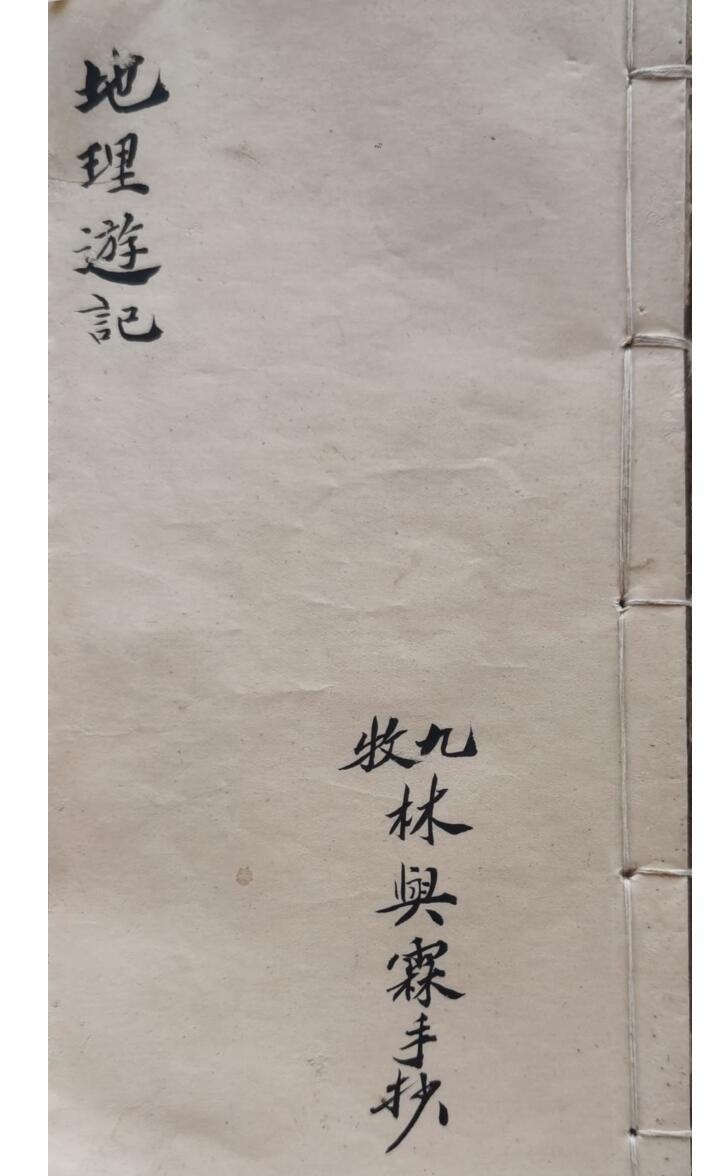 地理遊記
九牧
林興霖手抄